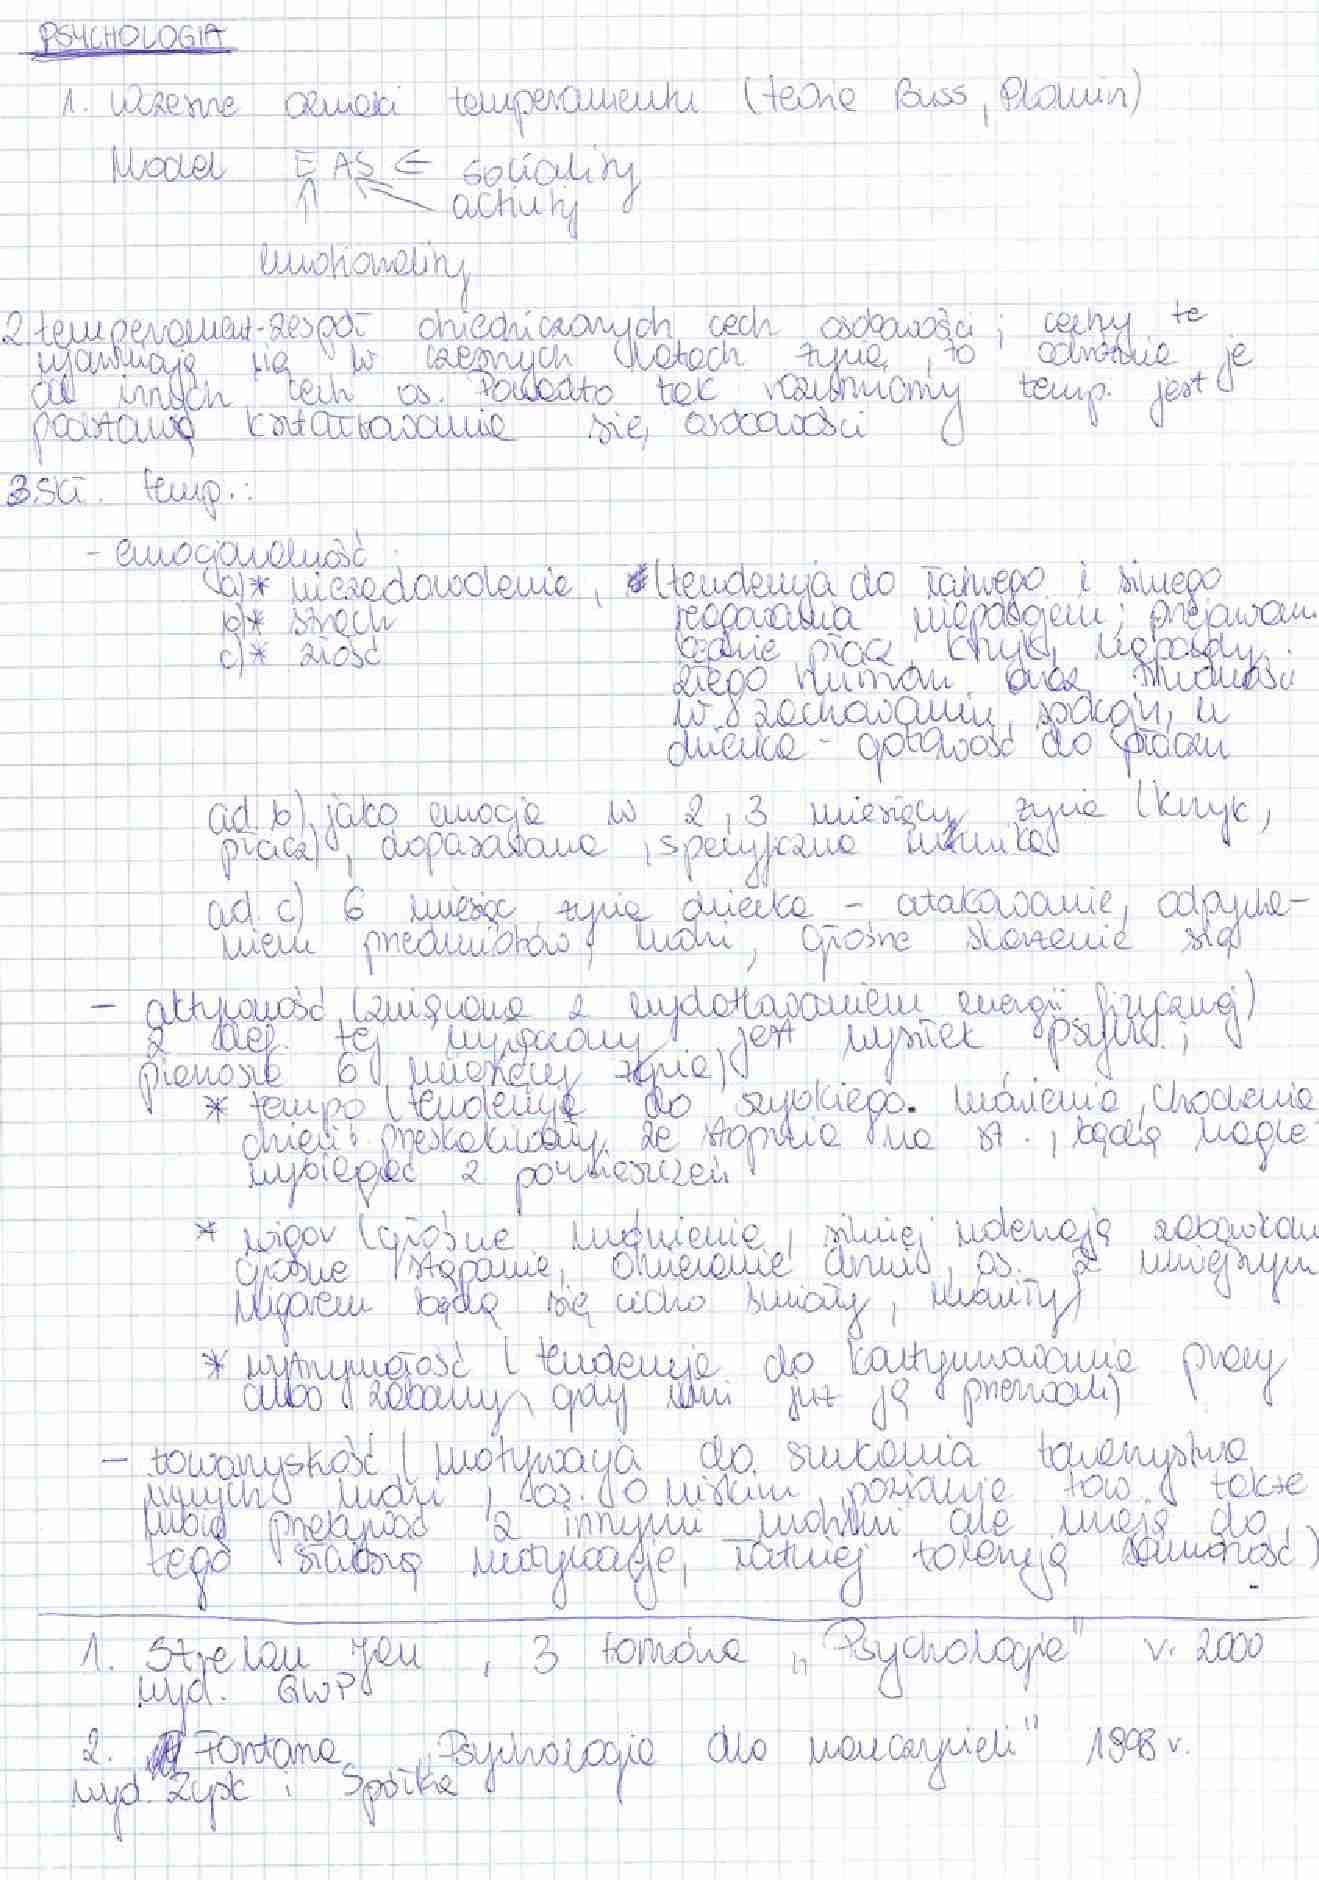 PSYCHOLOGIA
1. Wczesne oznaki temperamentu (teoria Buss, Plomin)
Model EAS ⇐ sociality
activity
emotionality
2. temperament - zespół dziedziczonych cech osobowości; cechy te
ujawniają się w czesnych latach życia, to odróżnia je
od innych cech os. Ponadto tak rozumiany temp. jest
podstawą kształtowania się osobowości
3. skł. temp.:
- emocjonalność
a) * niezadowolenie, (tendencja do łatwego i silnego
b) * strach reagowania niepokojem; przejawem
c) * złość będzie płacz, krzyk, napady
złego humoru oraz trudności
w zachowaniu spokoju, u
dziecka - gotowość do płaczu
ad. b) jako emocja w 2, 3 miesiącu życia (krzyk,
płacz), specyficzna mimika
ad. c) 6 miesiąc życia dziecka - atakowanie, odpycha-
niem przedmiotów, ludzi, głośne skarżenie się
- aktywność (związana z wydatkowaniem energii fizycznej)
z def. tej wyłączony jest wysiłek psych.;
pierwsze 6 miesięcy życia)
* tempo (tendencja do szybkiego mówienia, chodzenia
dzieci przeskakiwały ze stopnia na st., będą nagle
wybiegać z pomieszczeń
* wigor (głośne mówienie, silniej uderzają zabawkami
głośne stąpanie, otwieranie drzwi, os. z mniejszym
wigorem będą się cicho śmiały, mówiły)
* wytrzymałość (tendencja do kontynuowania pracy
albo zabawy, gdy inni już ją przerwali)
- towarzyskość (motywacja do szukania towarzystwa
innych ludzi, os. o niskim poziomie tow. także
lubią przebywać z innymi ludźmi ale mają do
tego słabszą motywację, łatwiej tolerują samotność)
1. Strelau Jan, 3 tomowa „Psychologia" r. 2000
wyd. GWP
2. Fontana „Psychologia dla nauczycieli" 1998 r.
wyd. Zysk i Spółka